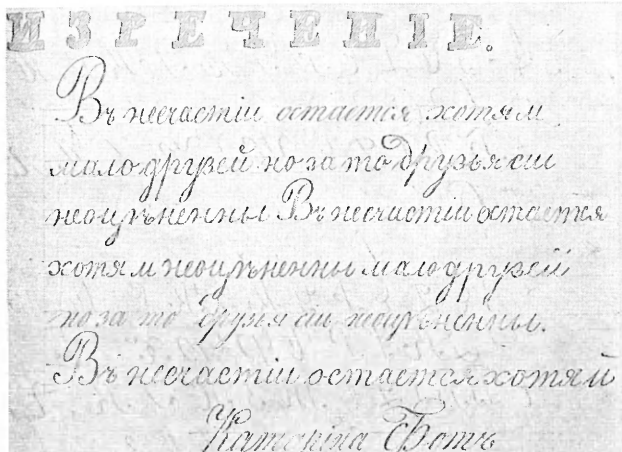 ИЗРЕЧЕНІЕ.
Въ несчастіи остается хотя м
мало друзей но за то друзья сіи
неоцѣненны Въ несчистіи остается
хотя м неоцѣненны мало друзей
но за то друзья сіи неоцѣненны.
Въ несчастіи остается хотя й
Катерина Ботъ